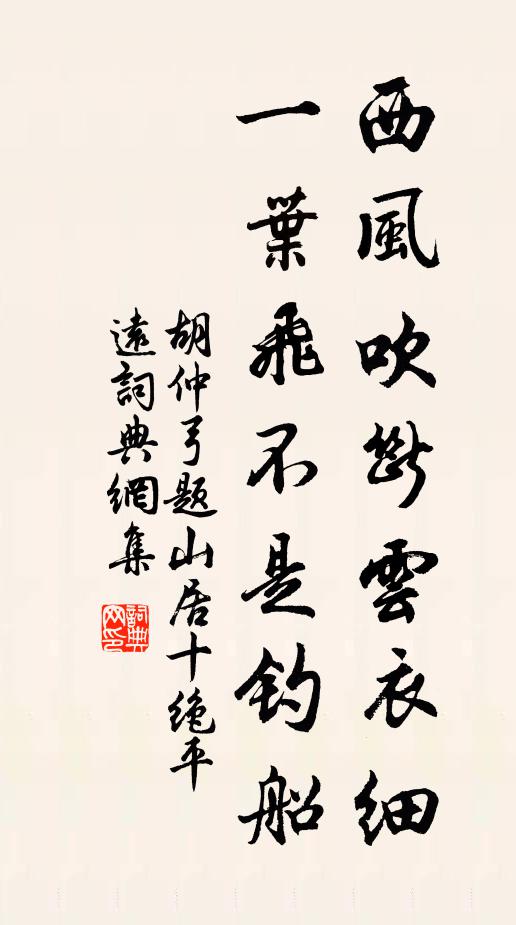 西風吹斷雲衣細
一葉飛不是釣船
胡仲弓題山居十絶平
遠詞典網集
詞典网印